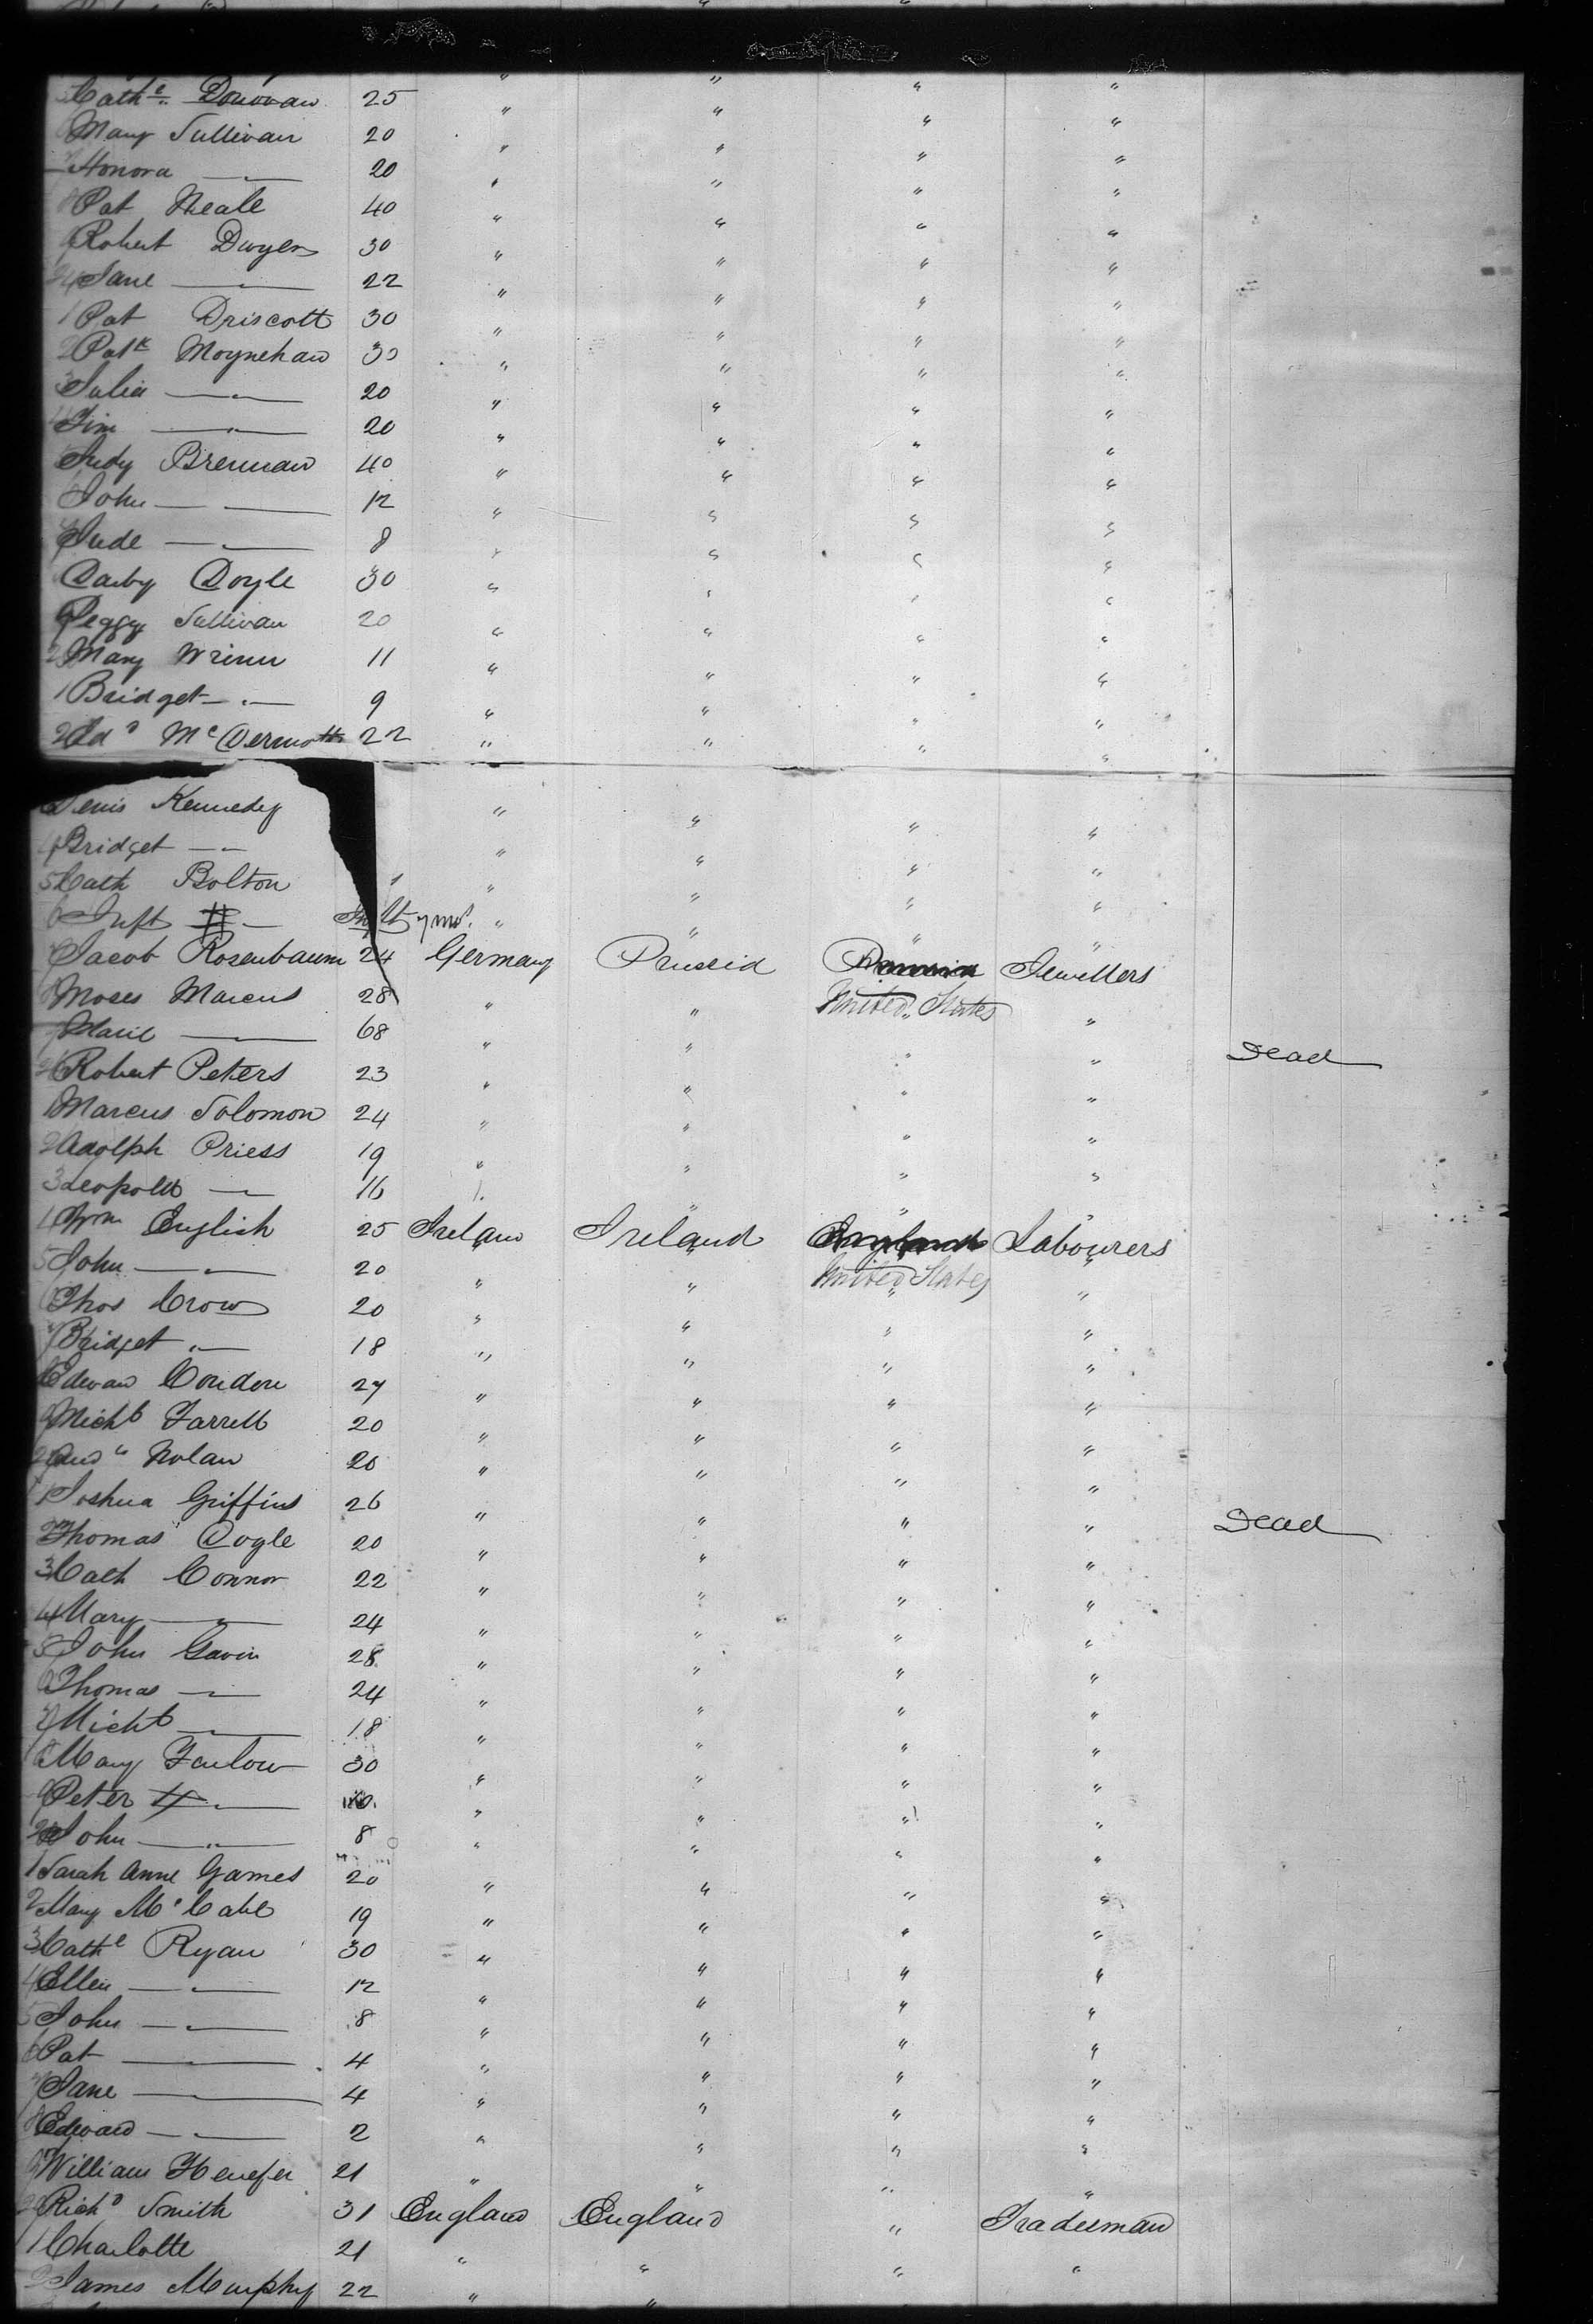 Cathe Donovan 25 " " " "
Mary Sullivan 20 " " " "
Honora — " — 20 " " " "
Pat Neale 40 " " " "
Robert Dwyer 30 " " " "
Jane — " — 22 " " " "
1 Pat Driscott 30 " " " "
2 Patk Moynehan 30 " " " "
3 Julia — " — 20 " " " "
4 Tim — " — 20 " " " "
Judy Brennan 40 " " " "
John — " — 12 " " " "
7 Jude — " — 8 " " " "
Darby Doyle 30 " " " "
9 Peggy Sullivan 20 " " " "
Mary Wrinn 11 " " " "
1 Bridget — " — 9 " " " "
2 Edd McDermott 22 " " " "
Denis Kennedy " " " "
4 Bridget — " — " " " "
5 Cath Bolton " " " "
6 Inft — " — 7 mos. " " " "
7 Jacob Rosenbaum 24 Germany Prussia Prussia Jewellers
8 Moses Marcus 28 " " United States "
9 Marie — 68 " " " " Dead
Robert Peters 23 " " " "
1 Marcus Solomon 24 " " " "
2 Adolph Priess 19 " " " "
3 Leopold — " — 16 " " " "
4 Wm English 25 Ireland Ireland England Labourers
5 John — " — 20 " " United States "
6 Thos Crow 20 " " " "
7 Bridget " — 18 " " " "
8 Edward Condon 27 " " " "
9 Michl Farrell 20 " " " "
Andw Nolan 20 " " " "
1 Joshua Griffins 26 " " " " Dead
2 Thomas Doyle 20 " " " "
3 Cath Connor 22 " " " "
4 Mary — " — 24 " " " "
5 John Gavin 28 " " " "
6 Thomas — " — 24 " " " "
7 Michl — " — 18 " " " "
8 Mary Farlow 30 " " " "
9 Peter — " — 10 " " " "
John — " — 8 " " " "
1 Sarah Anne Games 20 " " " "
2 Mary McCabe 19 " " " "
3 Cathe Ryan 30 " " " "
4 Ellen — " — 12 " " " "
5 John — " — 8 " " " "
6 Pat — " — 4 " " " "
7 Jane — " — 4 " " " "
8 Edward — " — 2 " " " "
9 William Henefer 21 " " " "
Richd Smith 31 England England " Tradesman
1 Charlotte 21 " " " "
2 James Murphy 22 " "